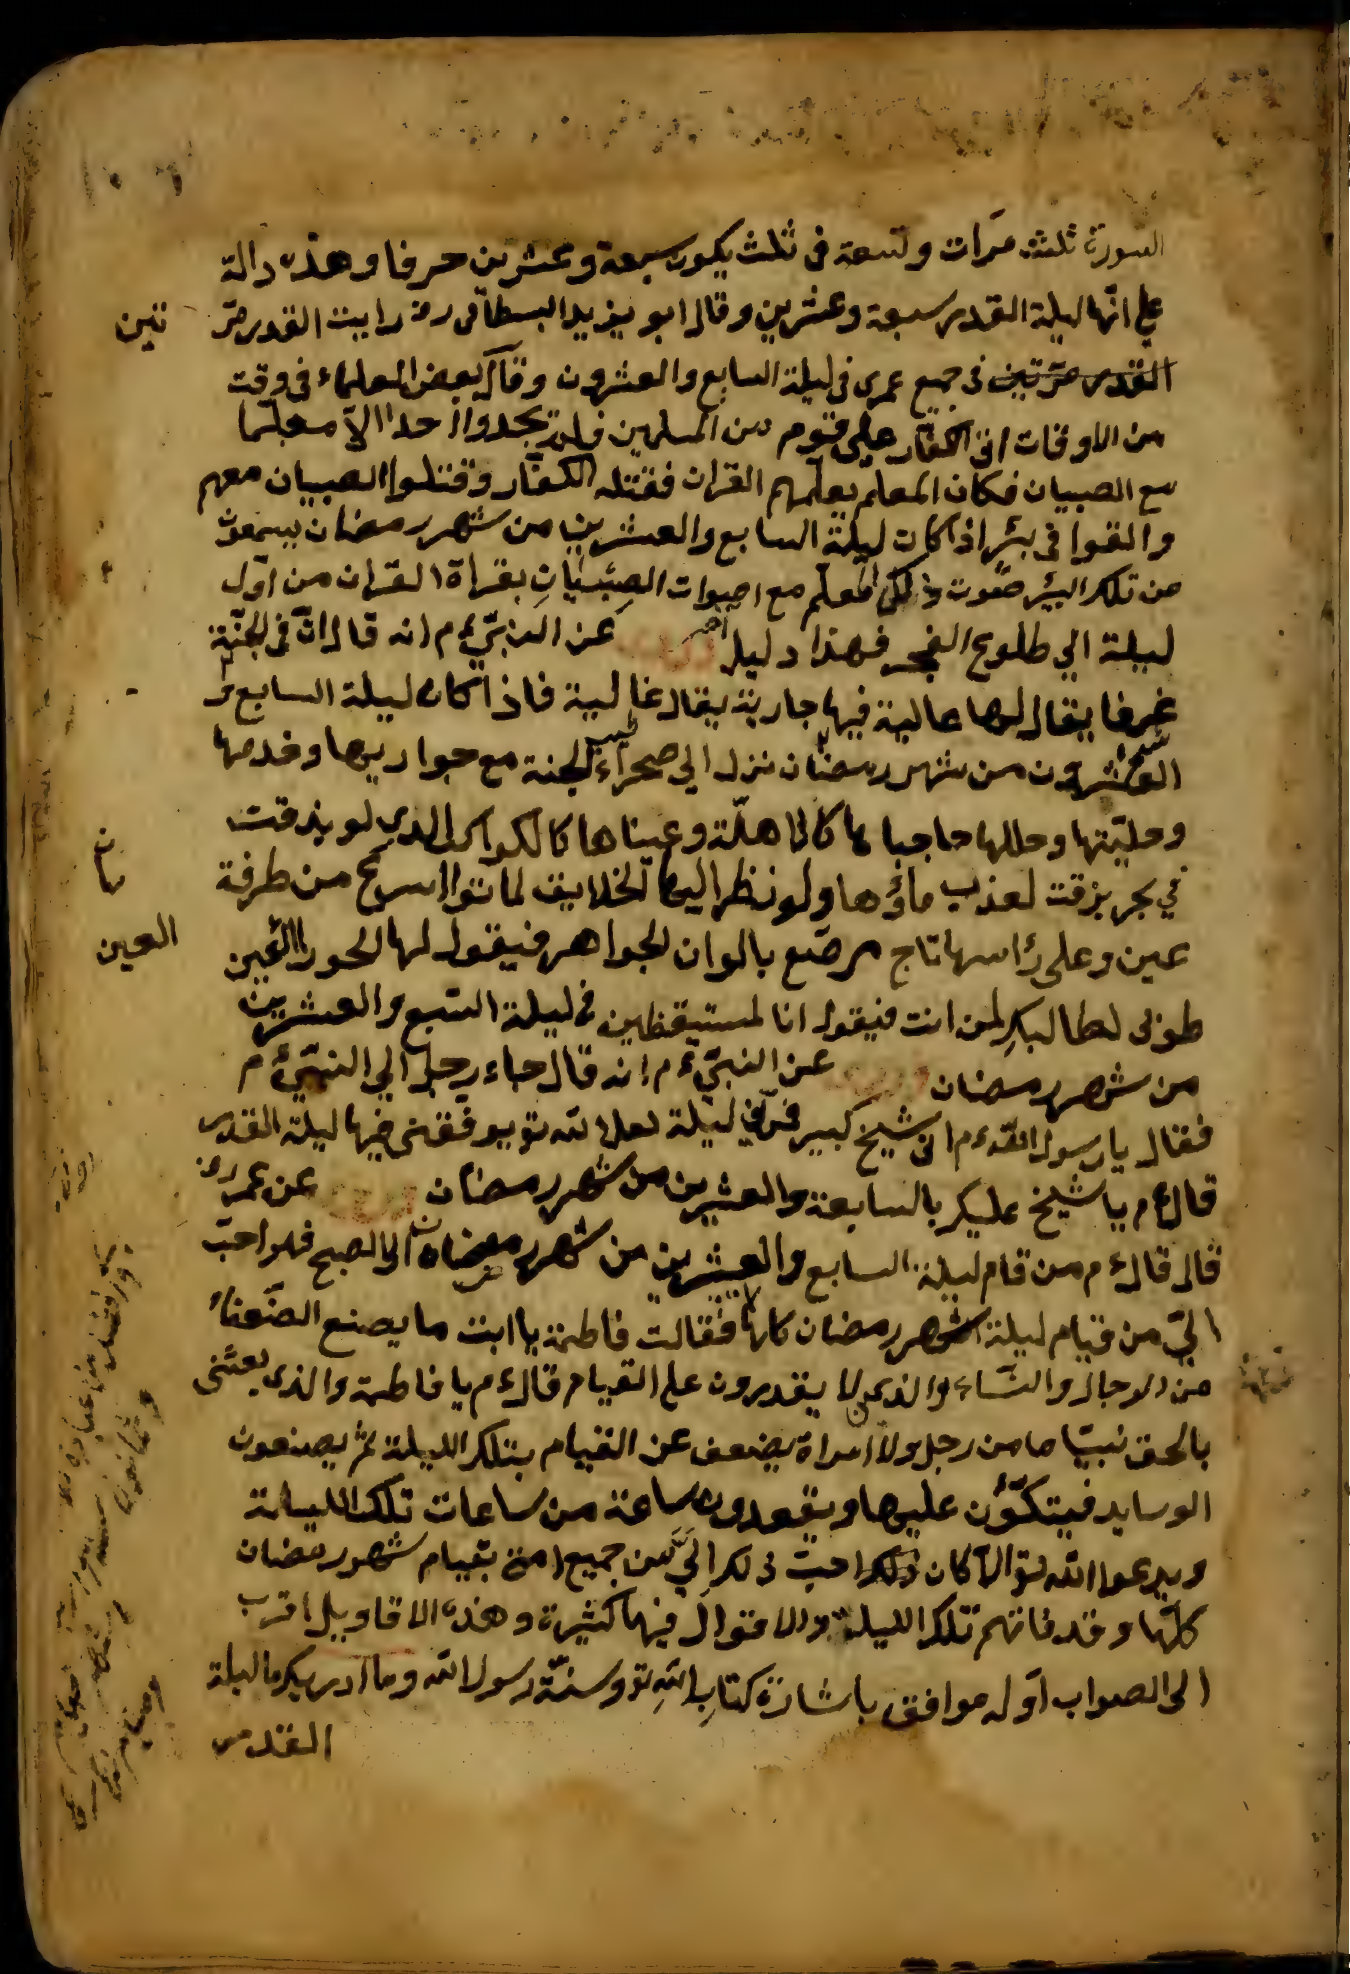 السورة ثلث مرّات وتسعة فى ثلث يكون سبعة وعشرين حرفا وهذه دالة
على انّها ليلة القدر سبعة وعشرين وقال ابو يزيد البسطامى رة رايت القدر مرّ تين
القدر مرّتين فى جميع عمرى فى ليلة السابع والعشرون وقال بعض العلماء فى وقت
من الاوقات اتى الكفّار على قوم من المسلمين فلم يجدوا احدا الاّ معلّما
مع الصبيان فكان المعلم يعلّمهم القران فقتله الكفّار وقتلوا الصبيان معهم
والقوا فى بئر اذا كان ليلة السابع والعشرين من شهر رمضان يسمعون
من تلك البئر صوت ذلك المعلّم مع اصوات الصبيان بقراة القران من اوّل
ليلة الي طلوع الفجر فهذا دليل آخر عن النبيّ ءم انه قال انّ فى الجنّة
غرفا يقال لها عالية فيها جارية يقال غالية فاذا كان ليلة السابع و
العشرون من شهر رمضان نزل الي صحراء الجنة مع جواريها وخدمها
وحليّتها وحللها حاجبا ها كالاهلّة وعيناها كالكواكب الدى لو بزقت
في بحر بزقت لعذب ماؤها ولو نظر اليها الخلايق لماتوا اسرع من طرفة
عين وعلى رأسها تاج مرصّع بالوان الجواهر فيقول لها الحور العين العين
طوبى لطالبك لمن انت فيقول انا لمستيقظين فى ليلة السّبع والعشرين
من شهر رمضان عن النبيّ ءم انه قال جاء رجل الي النبيّ ءم
فقال يا رسول اللّه ءم انى شيخ كبير فمرّنى ليلة لعل اللّه تع يوفقنى فيها ليلة القدر
قال ءم يا شيخ عليك بالسابعة والعشرين من شهر رمضان عن عمر رة
قال قال ءم من قام ليلة السابع والعشرين من شهر رمضان الى الصبح فهو احبّ
اليّ من قيام ليلة شهر رمضان كلها فقالت فاطمة يا ابت ما يصنع الضّعفاء
من الرجال والنّساء والذين لا يقدرون على القيام قال ءم يا فاطمة والذى بعثنى
بالحق نبيّا ما من رجل ولا امراة يضعف عن القيام بتلك الليلة ثم يصنعون
الوسايد فيتكّؤن عليها ويقعدون ساعة من ساعات تلك الليلة
ويدعوا اللّه تع الاّ كان ذلك احبّ ذلك اليّ من جميع امة بقيام شهر رمضان
كلّها وقد فاتهم تلك الليلة والاقوال فيها كثيرة وهذه الاقاويل اقرب
الى الصواب اوله موافق باشارة كتاب اللّه تع وسنّة رسول اللّه وما ادريك ما ليلة
القدر